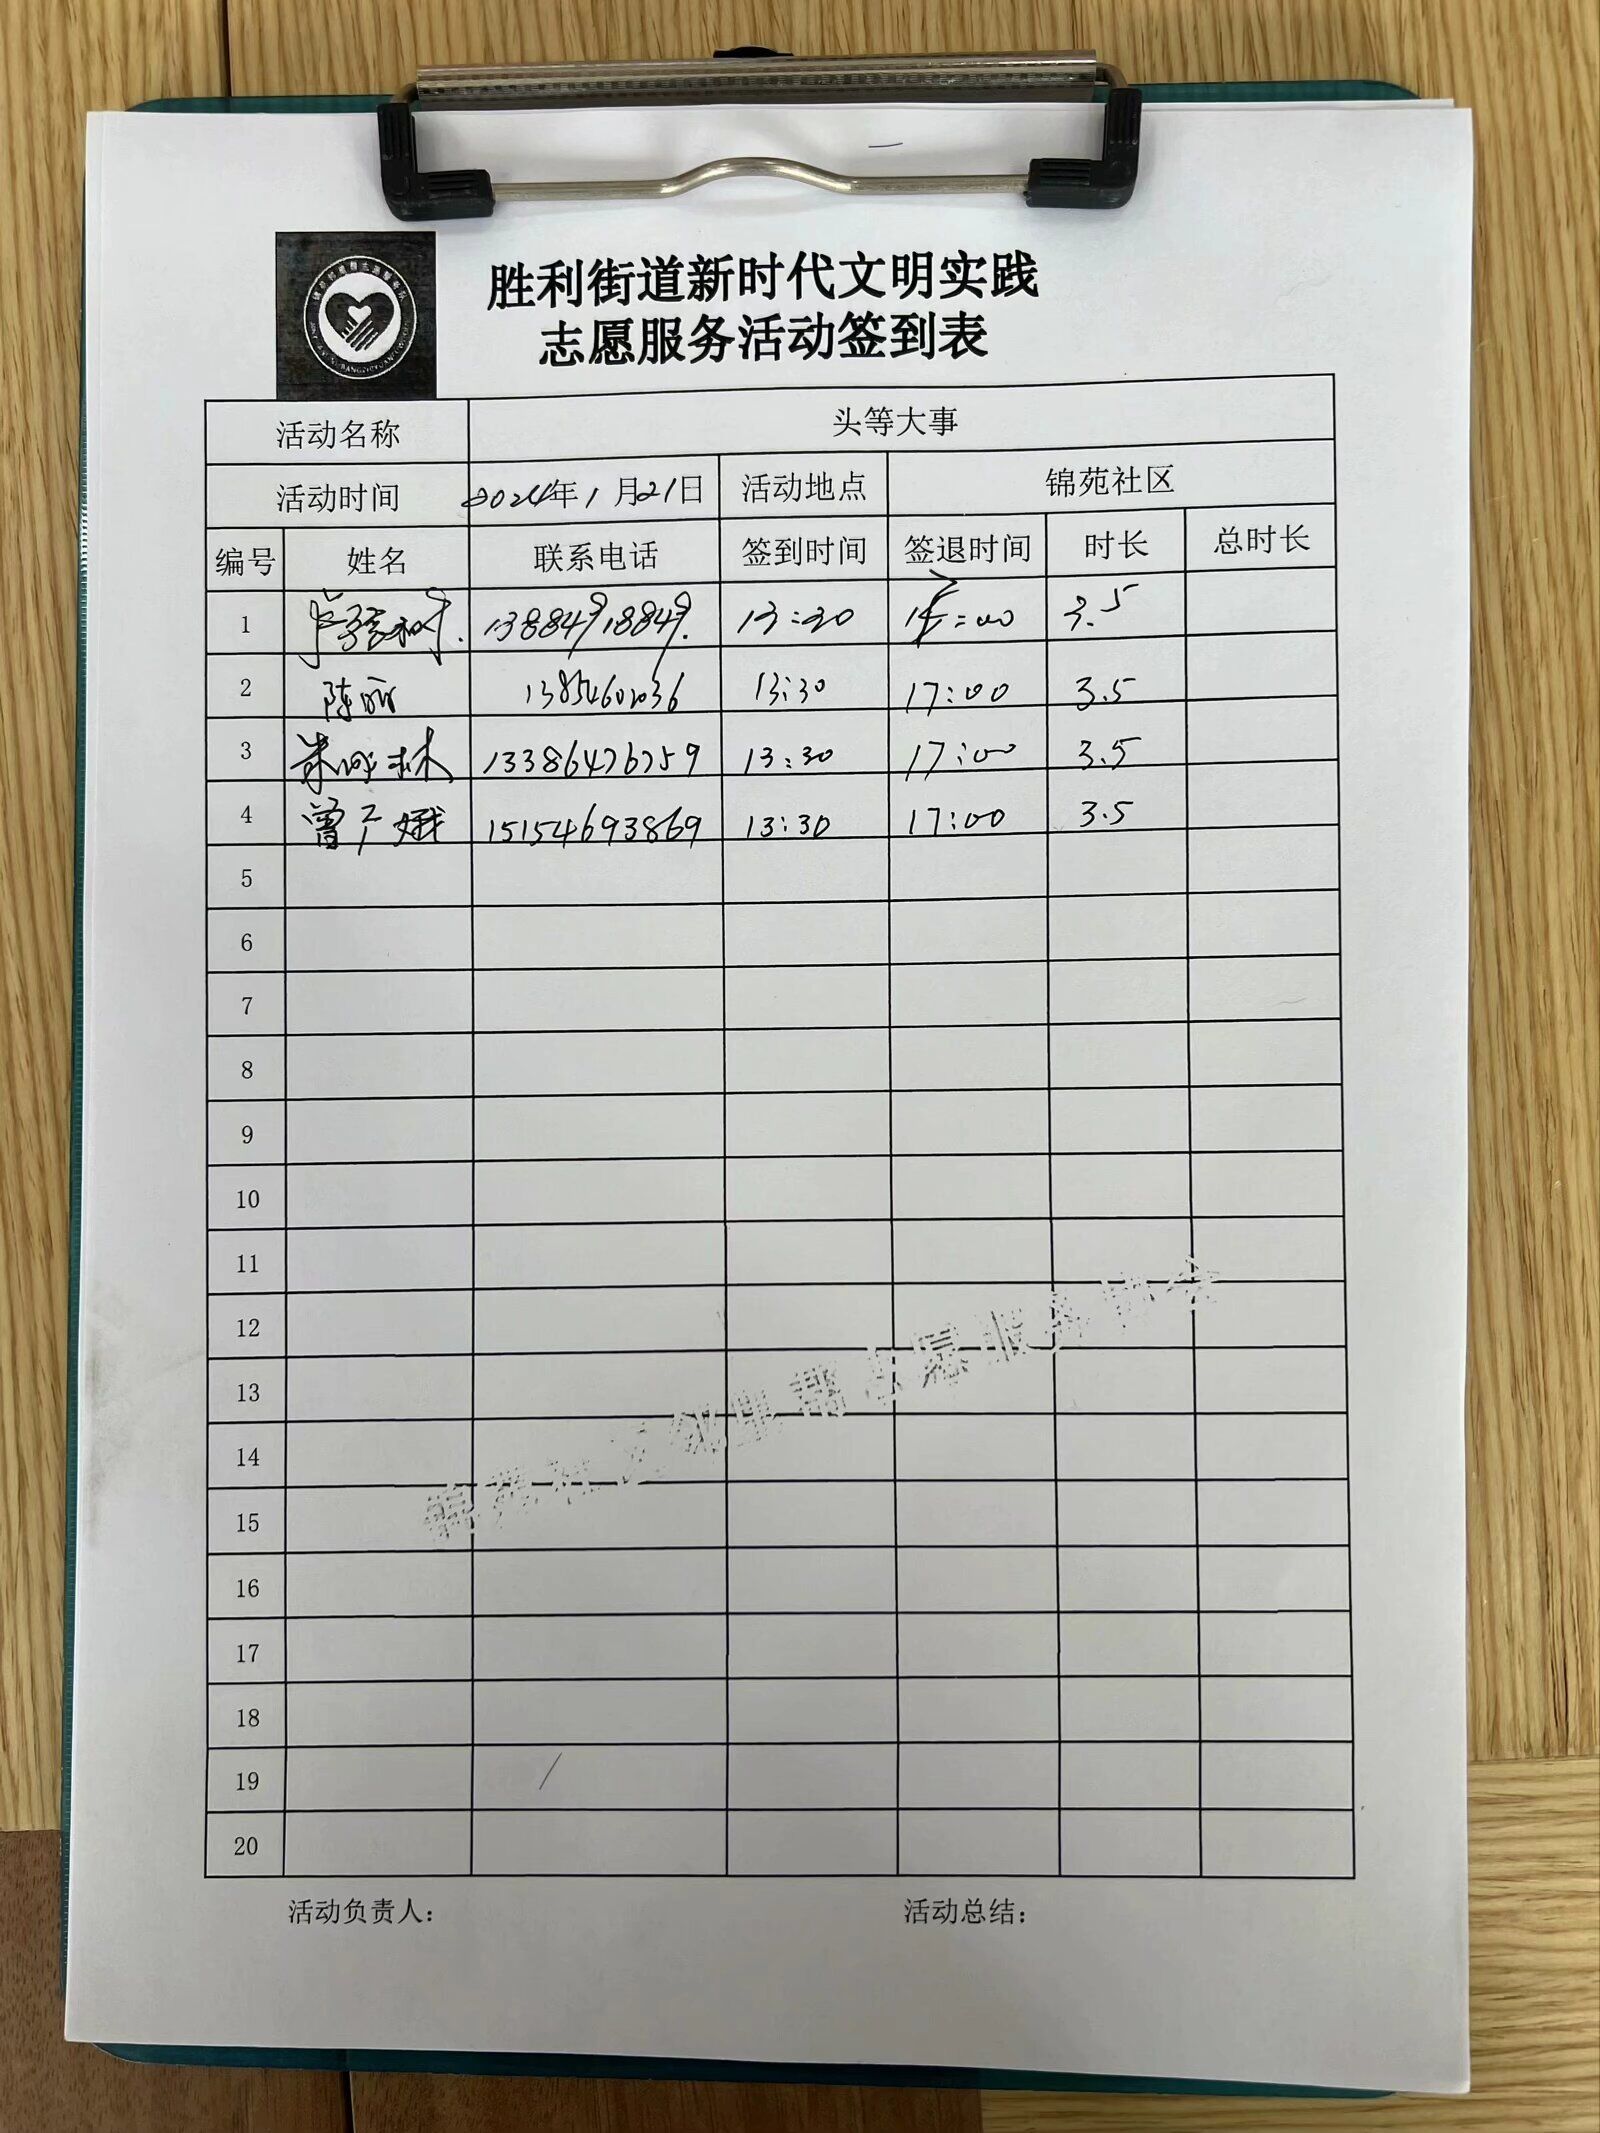 胜利街道新时代文明实践
志愿服务活动签到表
活动名称 头等大事
活动时间 2024年1月21日 活动地点 锦苑社区
编号 姓名 联系电话 签到时间 签退时间 时长 总时长
1 13884918849 13:30 17:00 3.5
2 陈丽 13854602036 13:30 17:00 3.5
3 朱 林 13386476759 13:30 17:00 3.5
4 曾广娥 15154693869 13:30 17:00 3.5
5
6
7
8
9
10
11
12
13
14
15
16
17
18
19
20
锦苑社区邻里帮志愿服务协会
活动负责人: 活动总结: